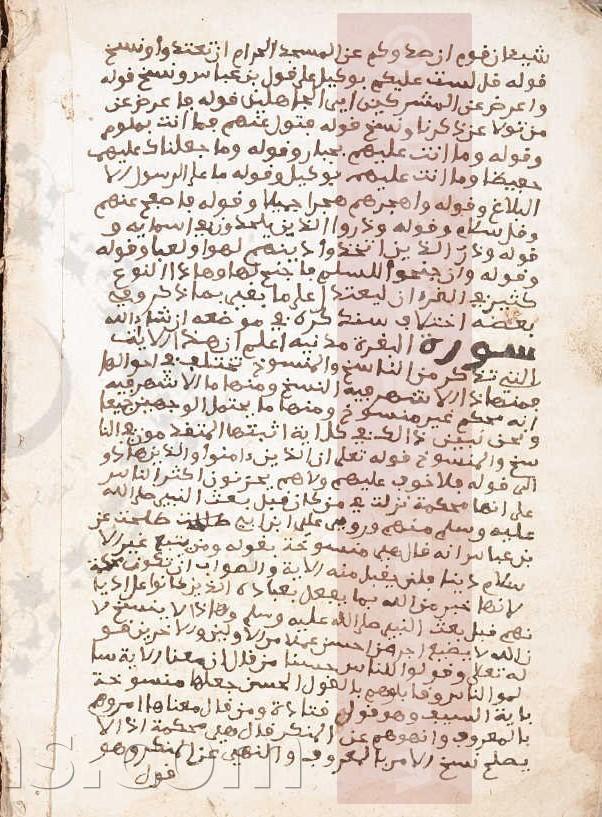 شنـٔان قوم ان صدوكم عن المسجد الحرام ان تعتدوا ونسخ
قوله قل لست عليكم بوكيل على قول بن عباس ونسخ قوله
واعرض عن المشركين الجاهلين قوله فاعرض عن
من تولا عن ذكرنا ونسخ قوله فتول عنهم فما انت بملوم
وقوله وما انت عليهم بجبار وقوله وما جعلناك عليهم
حفيظا وما انت عليهم بوكيل وقوله ما على الرسول الا
البلاغ وقوله واهجرهم هجرا جميلا وقوله فاصفح عنهم
وقل سلام وقوله وذروا الذين يلحدون في اسمايه و
قوله وذر الذين اتخذوا دينهم لهوا ولعبا وقوله
وقوله وان جنحوا للسلم فاجنح لها وهاذا النوع
كثير في القرءان ليعتدل على ما بقي بما ذكر وفي
بعضه اختلاف سنذكره في موضعه ان شاء الله
سورة البقرة مدنية اعلم ان هذه الايات
التي تذكر من الناسخ والمنسوخ تختلف في احوالها
فمنها ما الاشهر فيه النسخ ومنها ما الاشهر فيه
انه محكم غير منسوخ ومنها ما يحتمل الوجهين جميعا
ونحن نبين ذالك في كل اية اثبتها المتقدمون في النا
سخ والمنسوخ قوله تعلى ان الذين ءامنوا والذين هادو
الى قوله فلا خوف عليهم ولا هم يحزنون اكثر الناس
على انها محكمة نزلت في من كان قبل بعث النبي صلى الله
عليه وسلم منهم وروى علي ابن ابي طلحة عن
بن عباس انه قال هي منسوخة بقوله ومن يبتغ غير الا
سلام دينا فلن يقبل منه الاية والصواب ان تكون محكمة
لانها خبر من الله بما يفعل بعباده الذين كانوا على اديا
نهم قبل بعث النبي صلى الله عليه وسلم وهاذا لا ينسخ لا
ن الله لا يضيع اجر من احسن عملا من الاولين والاخرين قو
له تعلى وقولوا للناس حسنا من قال ان معنا الاية سا
لموا الناس وقابلوهم بالقول الحسن جعلها منسوخة
باية السيف وهو قول قتادة ومن قال معناها امروهم
بالمعروف وانهوهم عن المنكر قال هي محكمة اذ لا
يصلح نسخ الامر بالمعروف والنهي عن المنكر وهو
قول
ns.com